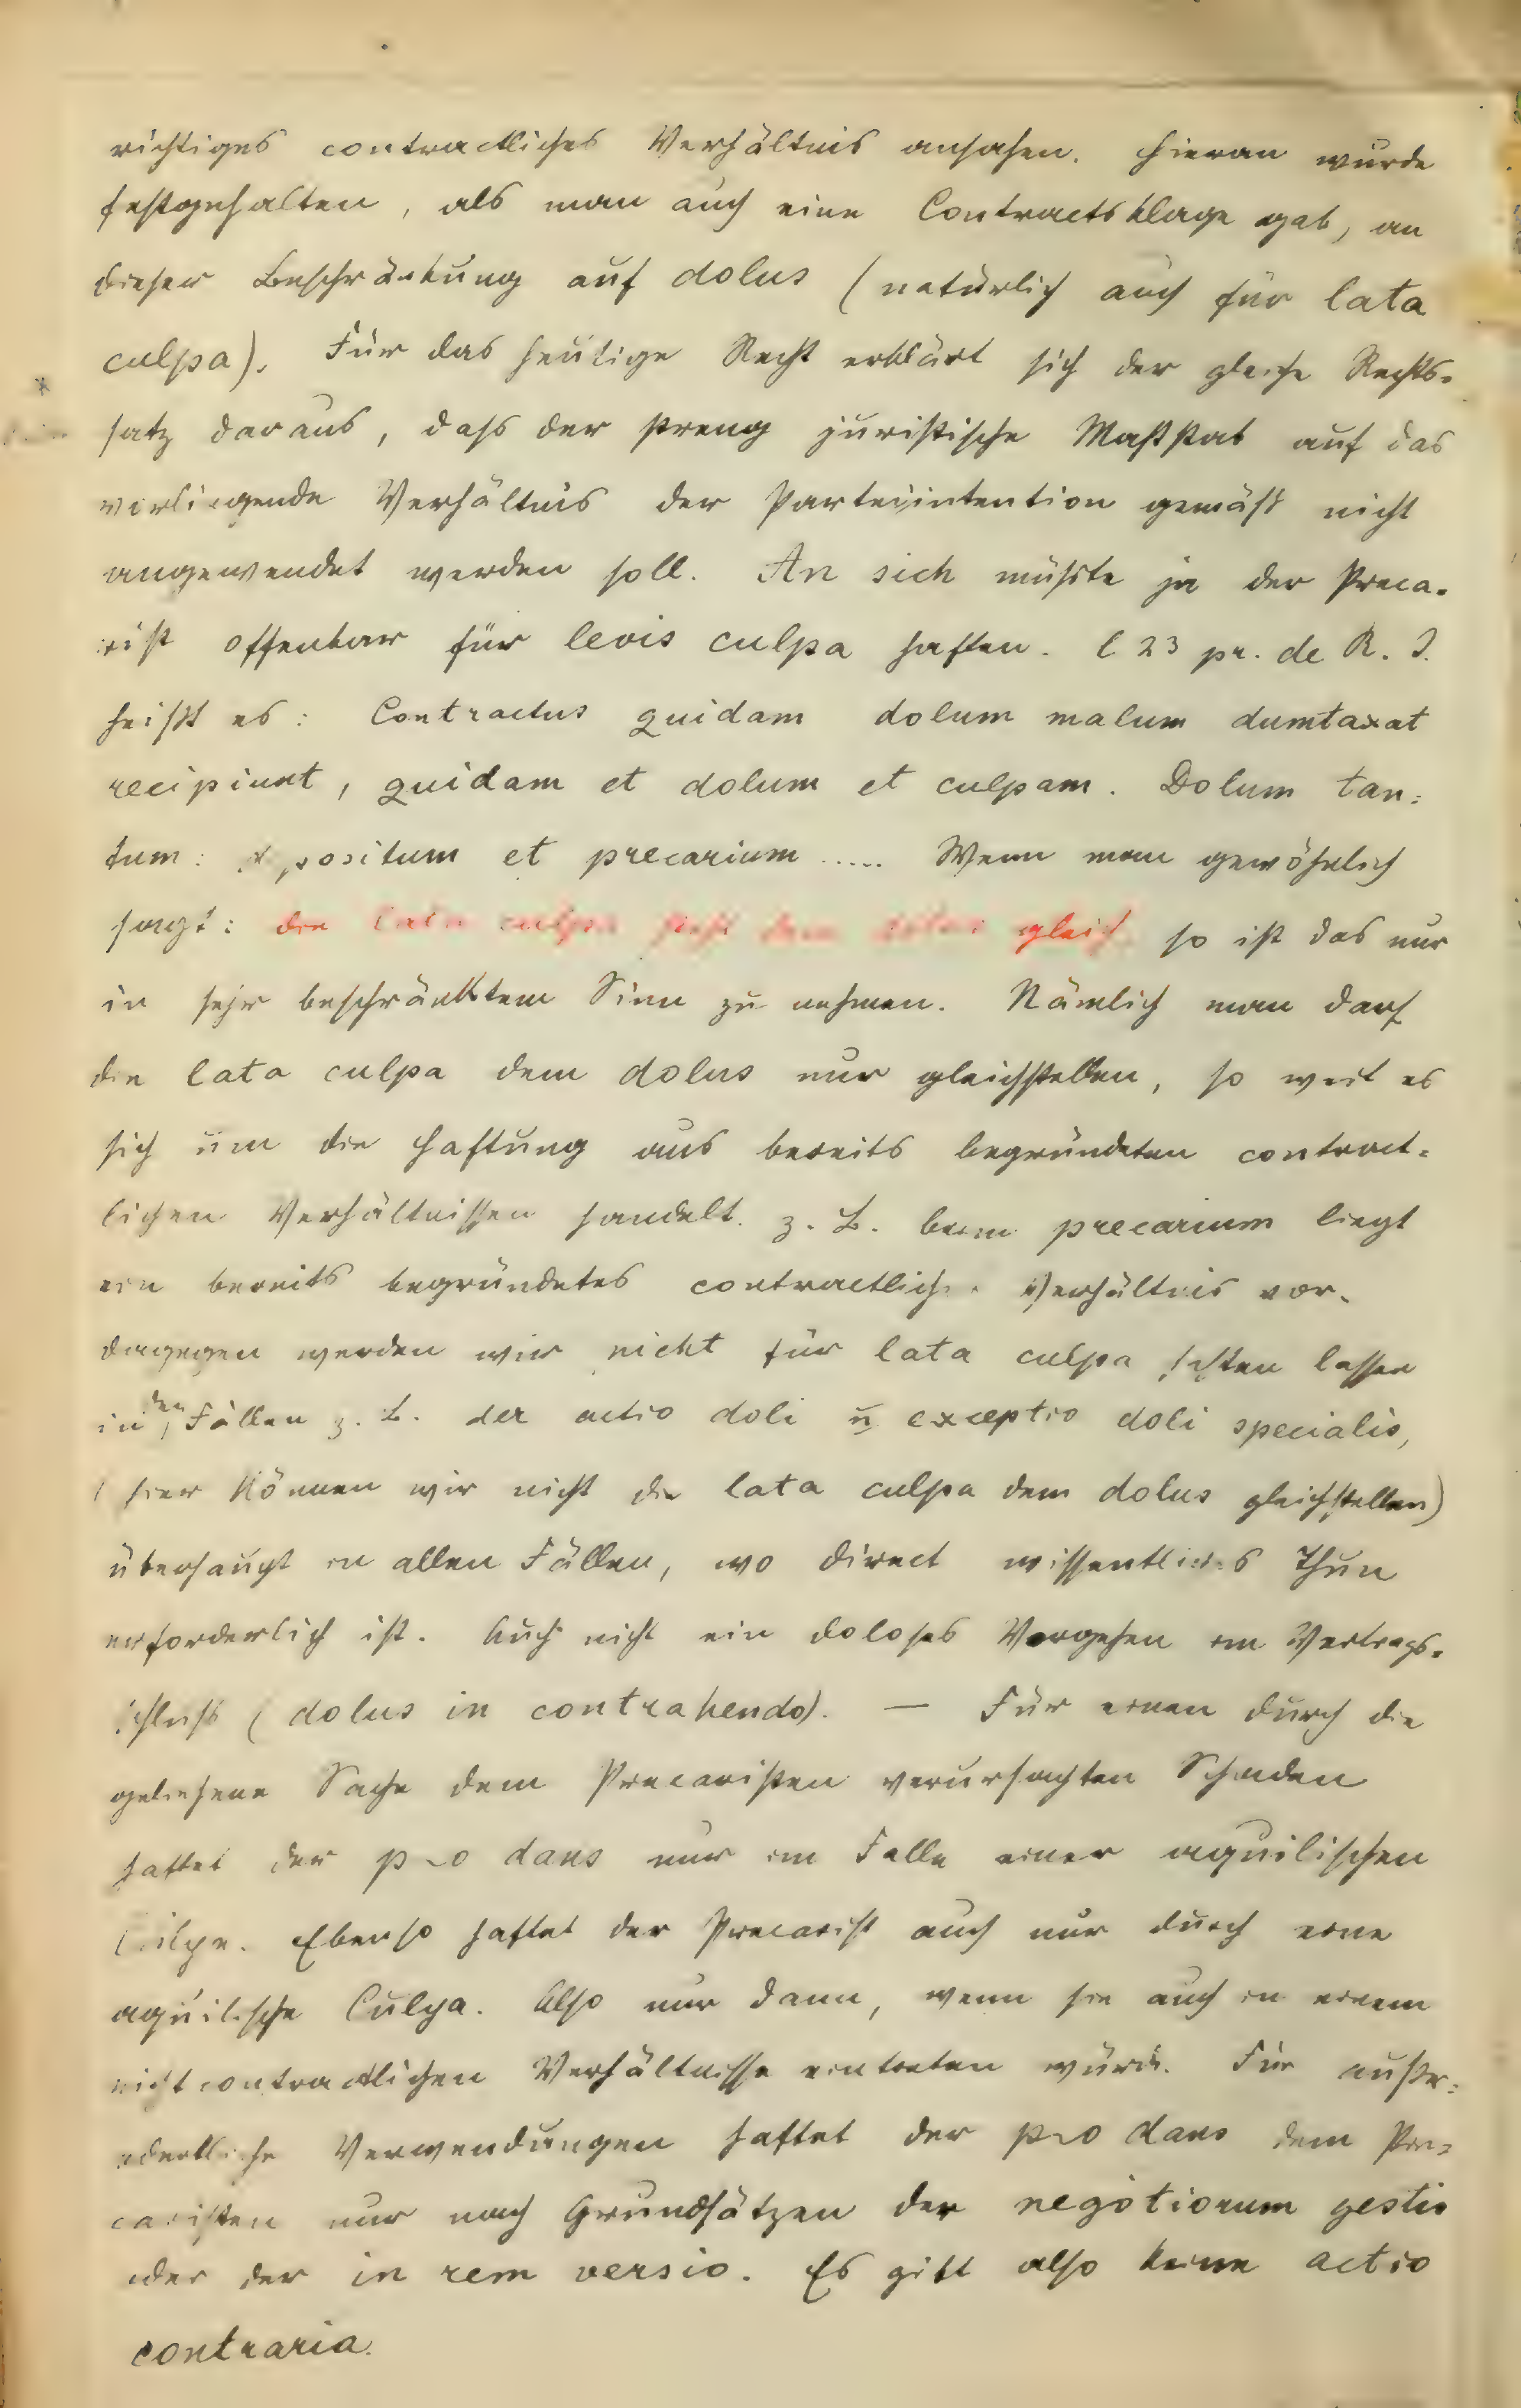 richtiges contractliches Verhältnis ansahen. Hieran wurde
festgehalten, als man auch eine Contractsklage gab, an
dieser Beschränkung auf dolus (natürlich auch für lata
culpa). Für das heutige Recht erklärt sich der gleiche Rechts-
satz daraus, dass der streng juristische Maßstab auf das
vorliegende Verhältnis der Parteiintention gemäß nicht
angewendet werden soll. An sich müsste ja der Preca-
rist offenbar für levis culpa haften. l 23 pr. de R. J.
heißt es: Contractus quidam dolum malum dumtaxat
recipiunt, quidam et dolum et culpam. Dolum tan-
tum: depositum et precarium ..... Wenn man gewöhnlich
sagt: die lata culpa steht dem dolus gleich so ist das nur
in sehr beschränktem Sinn zu nehmen. Nämlich man darf
die lata culpa dem dolus nur gleichstellen, so weit es
sich um die Haftung aus bereits begründeten contract-
lichen Verhältnissen handelt. z. B. beim precarium liegt
ein bereits begründetes contractliches Verhältnis vor.
dagegen werden wir nicht für lata culpa haften lassen
in den Fällen z. B. der actio doli u exceptio doli specialis,
(hier können wir nicht die lata culpa dem dolus gleichstellen)
überhaupt in allen Fällen, wo direct wissentliches Thun
erforderlich ist. Auch nicht ein doloses Vorgehen im Vertrags-
schluss (dolus in contrahendo). — Für einen durch die
geliehene Sache dem Precaristen verursachten Schaden
haftet der p–o dans nur im Falle einer aquilischen
Culpa. Ebenso haftet der Precarist auch nur durch eine
aquilische Culpa. Also nur dann, wenn sie auch in einem
nichtcontractlichen Verhältnisse eintreten würde. Für außer-
ordentliche Verwendungen haftet der p–o dans dem Pre-
caristen nur nach Grundsätzen der negotiorum gestio
oder der in rem versio. Es gibt also keine actio
contraria.